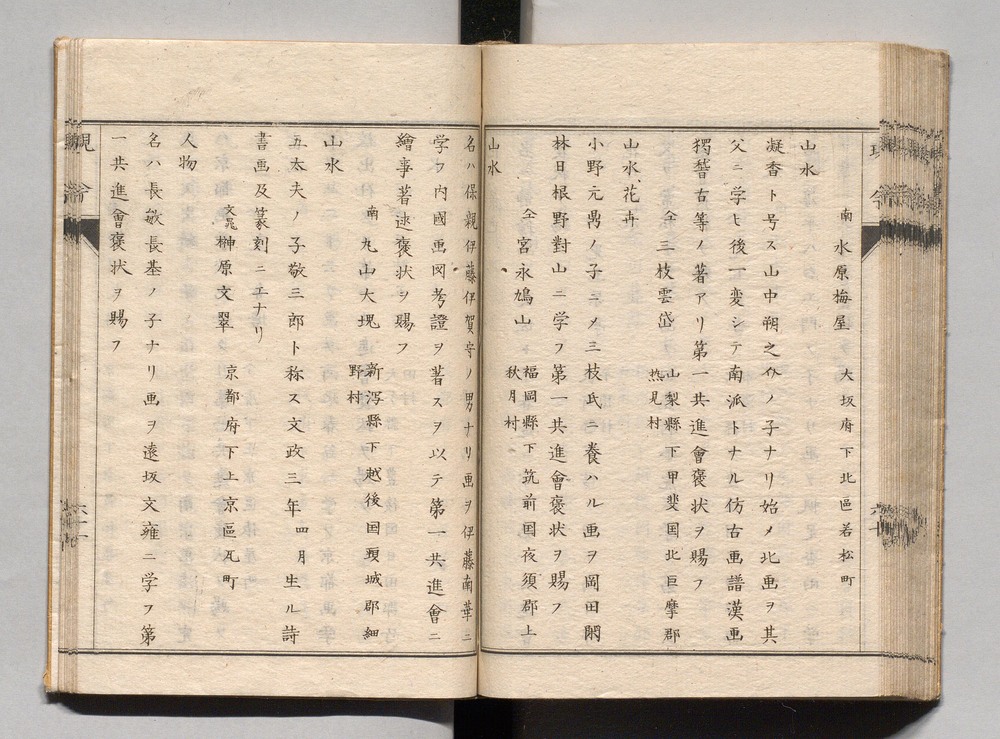 南 水原梅屋 大坂府下北區若松町
山水
凝香ト号ス山中朔之介ノ子ナリ始メ北画ヲ其
父ニ学ヒ後一変シテ南派トナル仿古画譜漢画
獨稽古等ノ著アリ第一共進會褒状ヲ賜フ
仝 三枝雲岱 山梨縣下甲斐国北巨摩郡
熱見村
山水、花卉
小野元禺ノ子ニメ三枝氏ニ養ハル画ヲ岡田閑
林日根野對山ニ学フ第一共進會褒状ヲ賜フ
仝 宮永鳩山 福岡縣下筑前国夜須郡上
秋月村
山水
名ハ保親伊藤伊賀守ノ男ナリ画ヲ伊藤南華ニ
学フ内國画図考證ヲ著スヲ以テ第一共進會ニ
繪事著述褒状ヲ賜フ
南 丸山大塊 新潟縣下越後国頸城郡細
野村
山水
五太夫ノ子敬三郎ト称ス文政三年四月生ル詩
書画及篆刻ニエナリ
文晁 榊原文翠 京都府下上京區瓦町
人物
名ハ長敏長基ノ子ナリ画ヲ遠坂文雍ニ学フ第
一共進會褒状ヲ賜フ